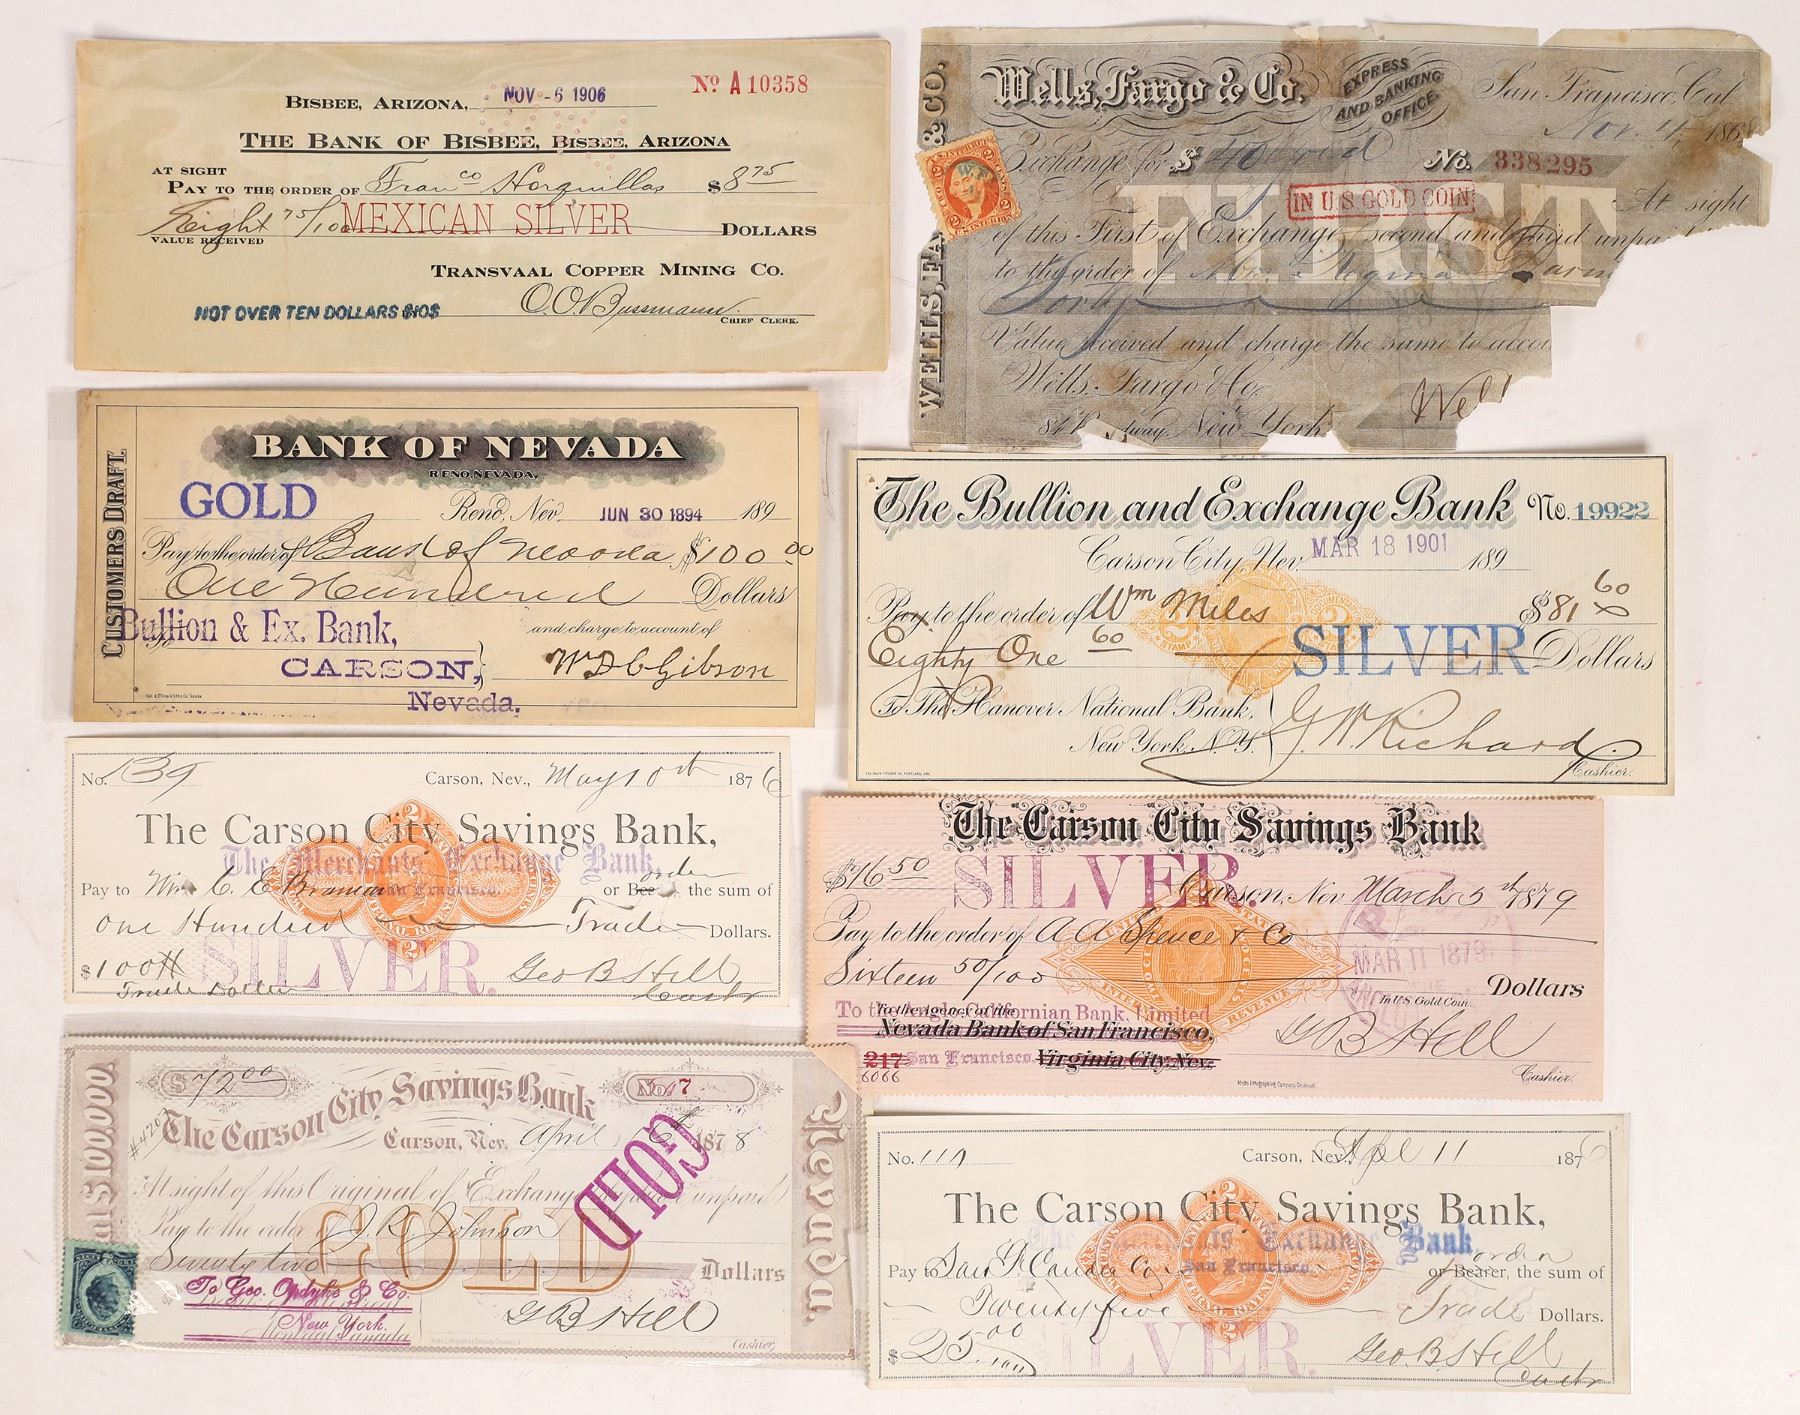 BISBEE, ARIZONA, NOV -6 1906
No A10358
THE BANK OF BISBEE, BISBEE, ARIZONA
AT SIGHT
PAY TO THE ORDER OF Franco Horquillas $8 75
Eight 75/100 MEXICAN SILVER DOLLARS
VALUE RECEIVED
TRANSVAAL COPPER MINING CO.
NOT OVER TEN DOLLARS $10$
CHIEF CLERK.
WELLS, FA & CO.
Wells, Fargo & Co. EXPRESS AND BANKING OFFICE.
San Francisco, Cal.
Nov. 4, 186
Exchange for $ 40 gold No. 338295
IN U S GOLD COIN
FIRST
At sight
of this First of Exchange, second and third unpa
to the order of Mrs. Regina
Forty
Value received and charge the same to accou
Wells, Fargo & Co.
84 B dway, New York
Well
CUSTOMERS DRAFT.
BANK OF NEVADA
RENO, NEVADA.
GOLD
Reno, Nev. JUN 30 1894 189
Pay to the order of Bank of Nevada $100 00
One Hundred Dollars
Bullion & Ex. Bank, and charge to account of
CARSON,
Nevada.
Wm D C Gibson
The Bullion and Exchange Bank No. 19922
Carson City, Nev. MAR 18 1901 189
Pay to the order of Wm Miles $81 60
Eighty One 60 SILVER Dollars
To The Hanover National Bank,
New York, N.Y.
G W Richard
Cashier.
No. 139 Carson, Nev., May 10th 1876
The Carson City Savings Bank,
The Merchants Exchange Bank,
San Francisco.
Pay to or Bearer order the sum of
One Hundred Trade Dollars.
$100 SILVER.
Trade Dollars
Geo B Hill
Cashr
The Carson City Savings Bank
$16 50 SILVER. Carson, Nev. March 5th 1879
Pay to the order of A A Spence & Co
MAR 11 1879
Sixteen 50/100 Dollars
In U.S. Gold Coin.
To the Anglo Californian Bank, Limited
To the agency of the
Nevada Bank of San Francisco,
217 San Francisco. Virginia City, Nev.
6066
G B Hill
Cashier.
$72.00 No
The Carson City Savings Bank
Carson, Nev. April 6th 1878
GOLD
$100,000
Nevada.
At sight of this Original of Exchange unpaid
Pay to the order J. R. Johnson
Seventy two GOLD Dollars
To Geo. Opdyke & Co.
New York.
Montreal Canada
G B Hill
Cashier
No. 111 Carson, Nev. Apl 11 1876
The Carson City Savings Bank,
The Merchants Exchange Bank
San Francisco
Pay to order
or Bearer, the sum of
Twenty five Trade Dollars.
$25.00 SILVER.
Geo. B. Hill
Cashr